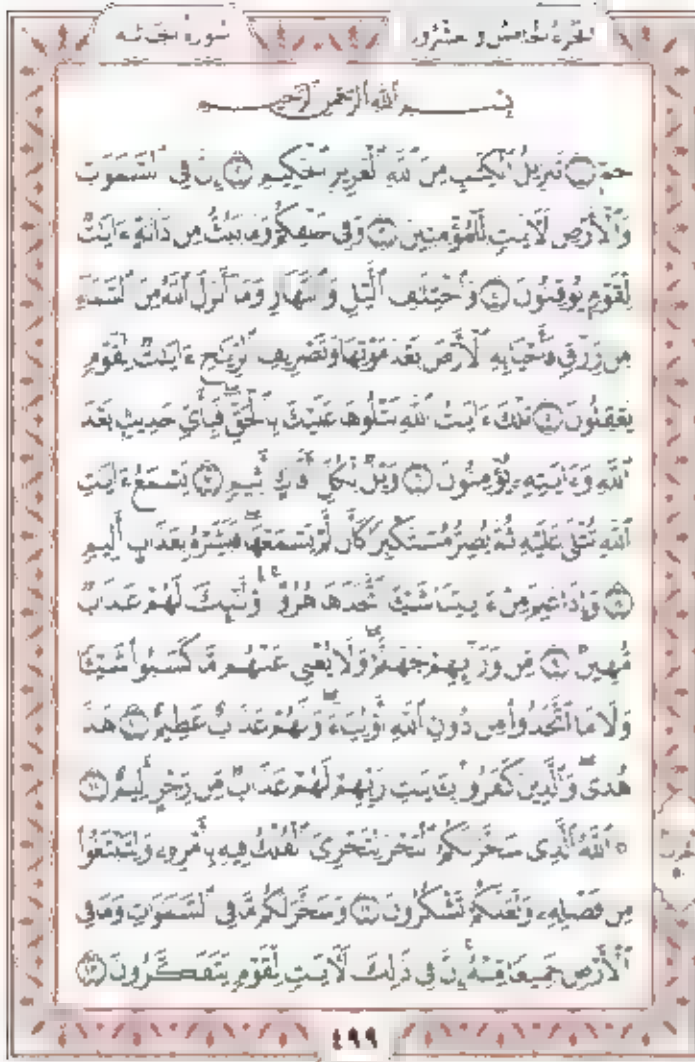 سورة الجاثية
الجزء الخامس والعشرون
بِسْمِ ٱللَّهِ ٱلرَّحْمَٰنِ ٱلرَّحِيمِ
حمٓ ١ تَنزِيلُ ٱلْكِتَٰبِ مِنَ ٱللَّهِ ٱلْعَزِيزِ ٱلْحَكِيمِ ٢ إِنَّ فِى ٱلسَّمَٰوَٰتِ
وَٱلْأَرْضِ لَءَايَٰتٍ لِّلْمُؤْمِنِينَ ٣ وَفِى خَلْقِكُمْ وَمَا يَبُثُّ مِن دَآبَّةٍ ءَايَٰتٌ
لِّقَوْمٍ يُوقِنُونَ ٤ وَٱخْتِلَٰفِ ٱلَّيْلِ وَٱلنَّهَارِ وَمَآ أَنزَلَ ٱللَّهُ مِنَ ٱلسَّمَآءِ
مِن رِّزْقٍ فَأَحْيَا بِهِ ٱلْأَرْضَ بَعْدَ مَوْتِهَا وَتَصْرِيفِ ٱلرِّيَٰحِ ءَايَٰتٌ لِّقَوْمٍ
يَعْقِلُونَ ٥ تِلْكَ ءَايَٰتُ ٱللَّهِ نَتْلُوهَا عَلَيْكَ بِٱلْحَقِّ ۖ فَبِأَىِّ حَدِيثٍۭ بَعْدَ
ٱللَّهِ وَءَايَٰتِهِۦ يُؤْمِنُونَ ٦ وَيْلٌ لِّكُلِّ أَفَّاكٍ أَثِيمٍ ٧ يَسْمَعُ ءَايَٰتِ
ٱللَّهِ تُتْلَىٰ عَلَيْهِ ثُمَّ يُصِرُّ مُسْتَكْبِرًا كَأَن لَّمْ يَسْمَعْهَا ۖ فَبَشِّرْهُ بِعَذَابٍ أَلِيمٍ
٨ وَإِذَا عَلِمَ مِنْ ءَايَٰتِنَا شَيْـًٔا ٱتَّخَذَهَا هُزُوًا ۚ أُو۟لَٰٓئِكَ لَهُمْ عَذَابٌ
مُّهِينٌ ٩ مِّن وَرَآئِهِمْ جَهَنَّمُ ۖ وَلَا يُغْنِى عَنْهُم مَّا كَسَبُوا۟ شَيْـًٔا
وَلَا مَا ٱتَّخَذُوا۟ مِن دُونِ ٱللَّهِ أَوْلِيَآءَ ۖ وَلَهُمْ عَذَابٌ عَظِيمٌ ١٠ هَٰذَا
هُدًى ۖ وَٱلَّذِينَ كَفَرُوا۟ بِـَٔايَٰتِ رَبِّهِمْ لَهُمْ عَذَابٌ مِّن رِّجْزٍ أَلِيمٌ ١١
۞ ٱللَّهُ ٱلَّذِى سَخَّرَ لَكُمُ ٱلْبَحْرَ لِتَجْرِىَ ٱلْفُلْكُ فِيهِ بِأَمْرِهِۦ وَلِتَبْتَغُوا۟
مِن فَضْلِهِۦ وَلَعَلَّكُمْ تَشْكُرُونَ ١٢ وَسَخَّرَ لَكُم مَّا فِى ٱلسَّمَٰوَٰتِ وَمَا فِى
ٱلْأَرْضِ جَمِيعًا مِّنْهُ ۚ إِنَّ فِى ذَٰلِكَ لَءَايَٰتٍ لِّقَوْمٍ يَتَفَكَّرُونَ ١٣
٤٩٩